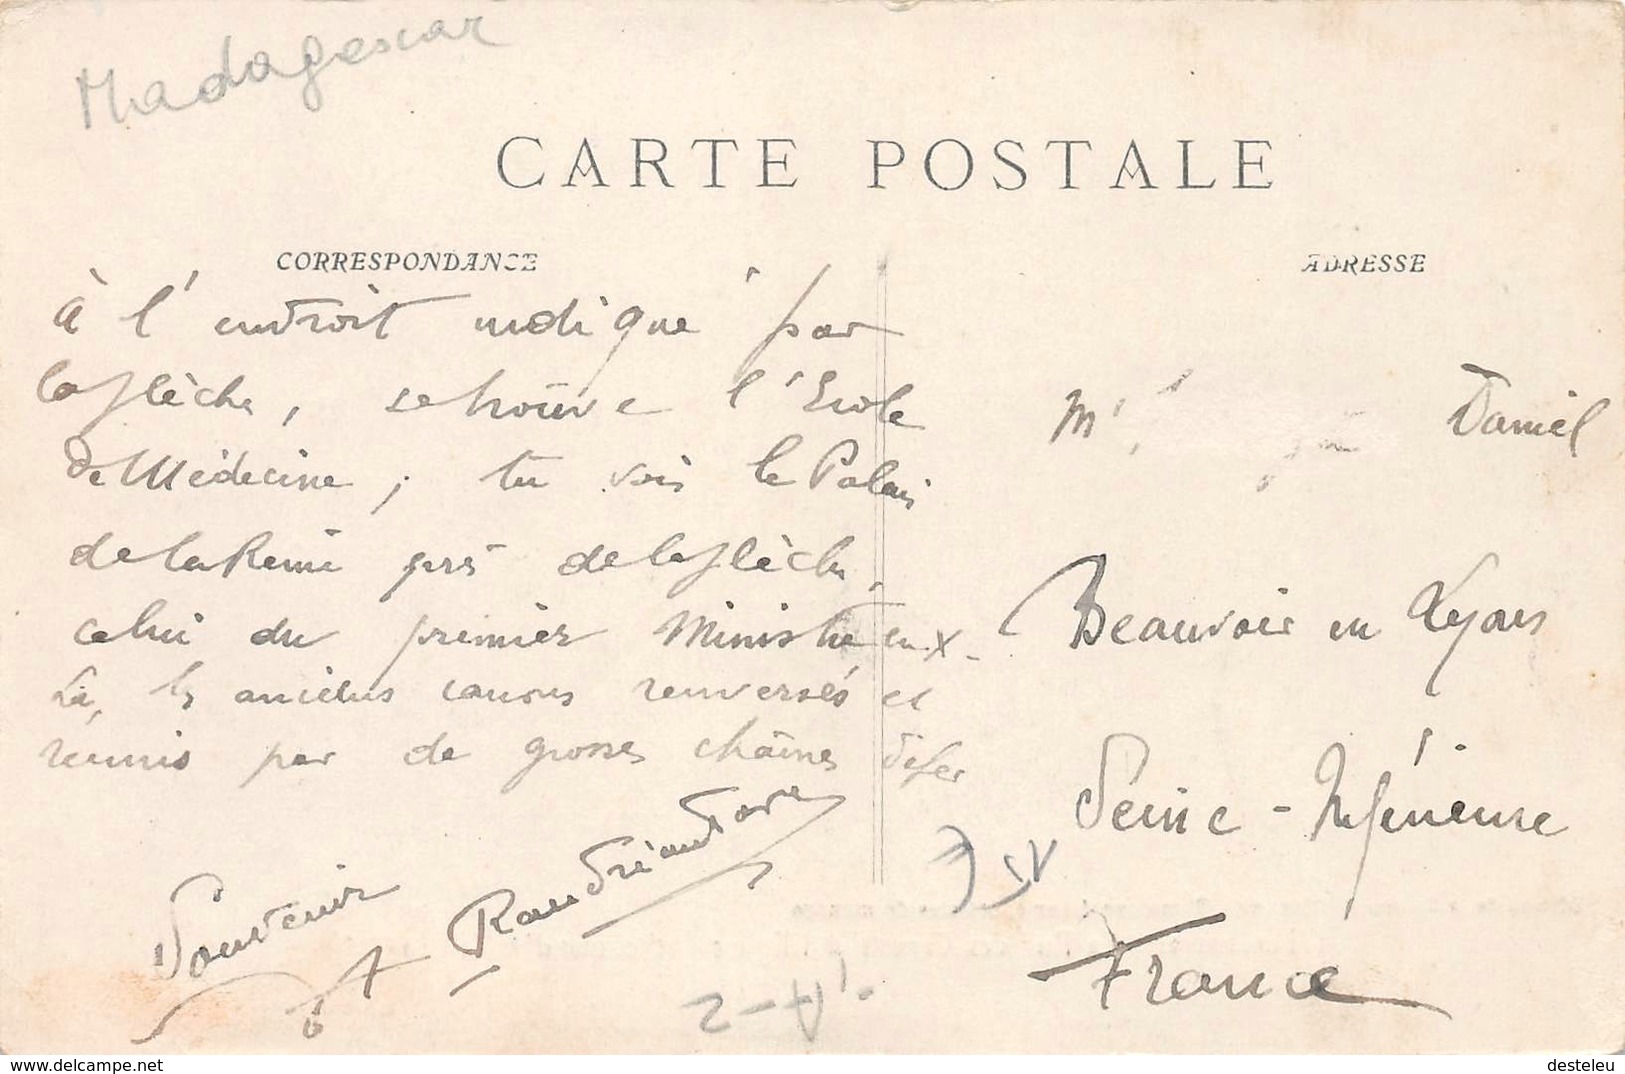 Madagascar
CARTE POSTALE
CORRESPONDANCE
ADRESSE
à l'endroit indiqué par
la flèche, se trouve l'Ecole
de Médecine ; tu vois le Palais
de la Reine près de la flèche,
celui du premier Ministre en X.
Là, les anciens canons renversés et
réunis par de grosses chaînes de fer
Souvenir
A Randriantavy
Mr Daniel
Beauvoir en Lyons
Seine-Inférieure
France
https://www.delcampe.net
desteleu